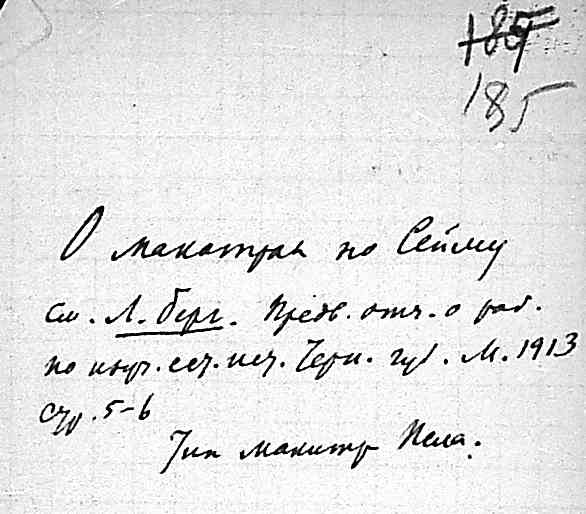 185
О макотрах по Сейму
см. Л. Берг. Предв. отч. о раб.
по изуч. ест. ист. Черн. губ. М. 1913
стр. 5-6
Тип макитр Псла.